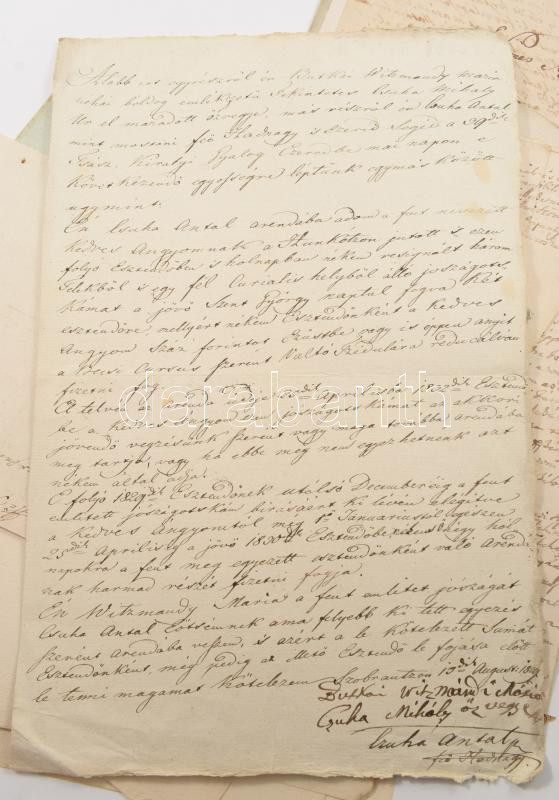 Alább irt egyrészről én Butkai Witzmandy Maria
néhai boldog emlékezetű Tekintetes Csuha Mihály
Ur el maradott özvegye, más részről én Csuha Antal
mint mostani feő Hadnagy is szeréd Segéd a 39dik
Tsász. Királyi Gyalog Ezeredbe mai napon e
Következendő egyességre léptünk egymás között
ugymint:
Én Csuha Antal arendába adom a fent nevezett
kedves Angyomnak a Hunkótzon jutott s ezen
folyó Esztendőben is holnapban nékem resignált három
telekből is egy fél Curialis helyből álló jószágots
kámat a jövő Szent György naptul fogva Két
esztendőre, mellyért nékem Esztendőnként a kedves
Angyom Száz forintot Ezüstbe vagy is éppen annyit
a Pesti Cursus szerent Váltó Tzédulára reducálván
fizetni fog.
A letelvén az Arenda ideje Aprilisba 1832dik Esztendő
be a kedves Angyom ezen jószágotskámat az akkori
jövendő végzésünk szerent vagy maga továbba arendába
meg tartja, vagy ha ebbe meg nem egyezhetnénk azt
nékem által adja.
E folyó 1829dik Esztendőnek utólsó Decemberéig a fent
emlitett jószágotskám birásáért ki lévén elégitve
a kedves Angyomtól még 1ső Januariustól egészen
25dik Aprilisig a jövő 1830dik Esztendőbe négy hol
napokra a fent meg egyezett esztendőnként való arendá
nak harmad részét fizetni fogja.
Én Witzmandy Maria a fent emlitet jószágát
Csuha Antal Ötsémnek ama felyebb ki tett egyezés
szerent Arendába veszem, is azért a le kötelezett Sumát
Esztendőnként, meg pedig az Mető Esztendő le fojása előtt
le tenni magamat kötelezem Szobrantzon 10dik Augusti 1829
Buttkai Witzmándi Mária
Czuha Mihály özvegye
Czuha Antal
feő Hadnagy
darabanth